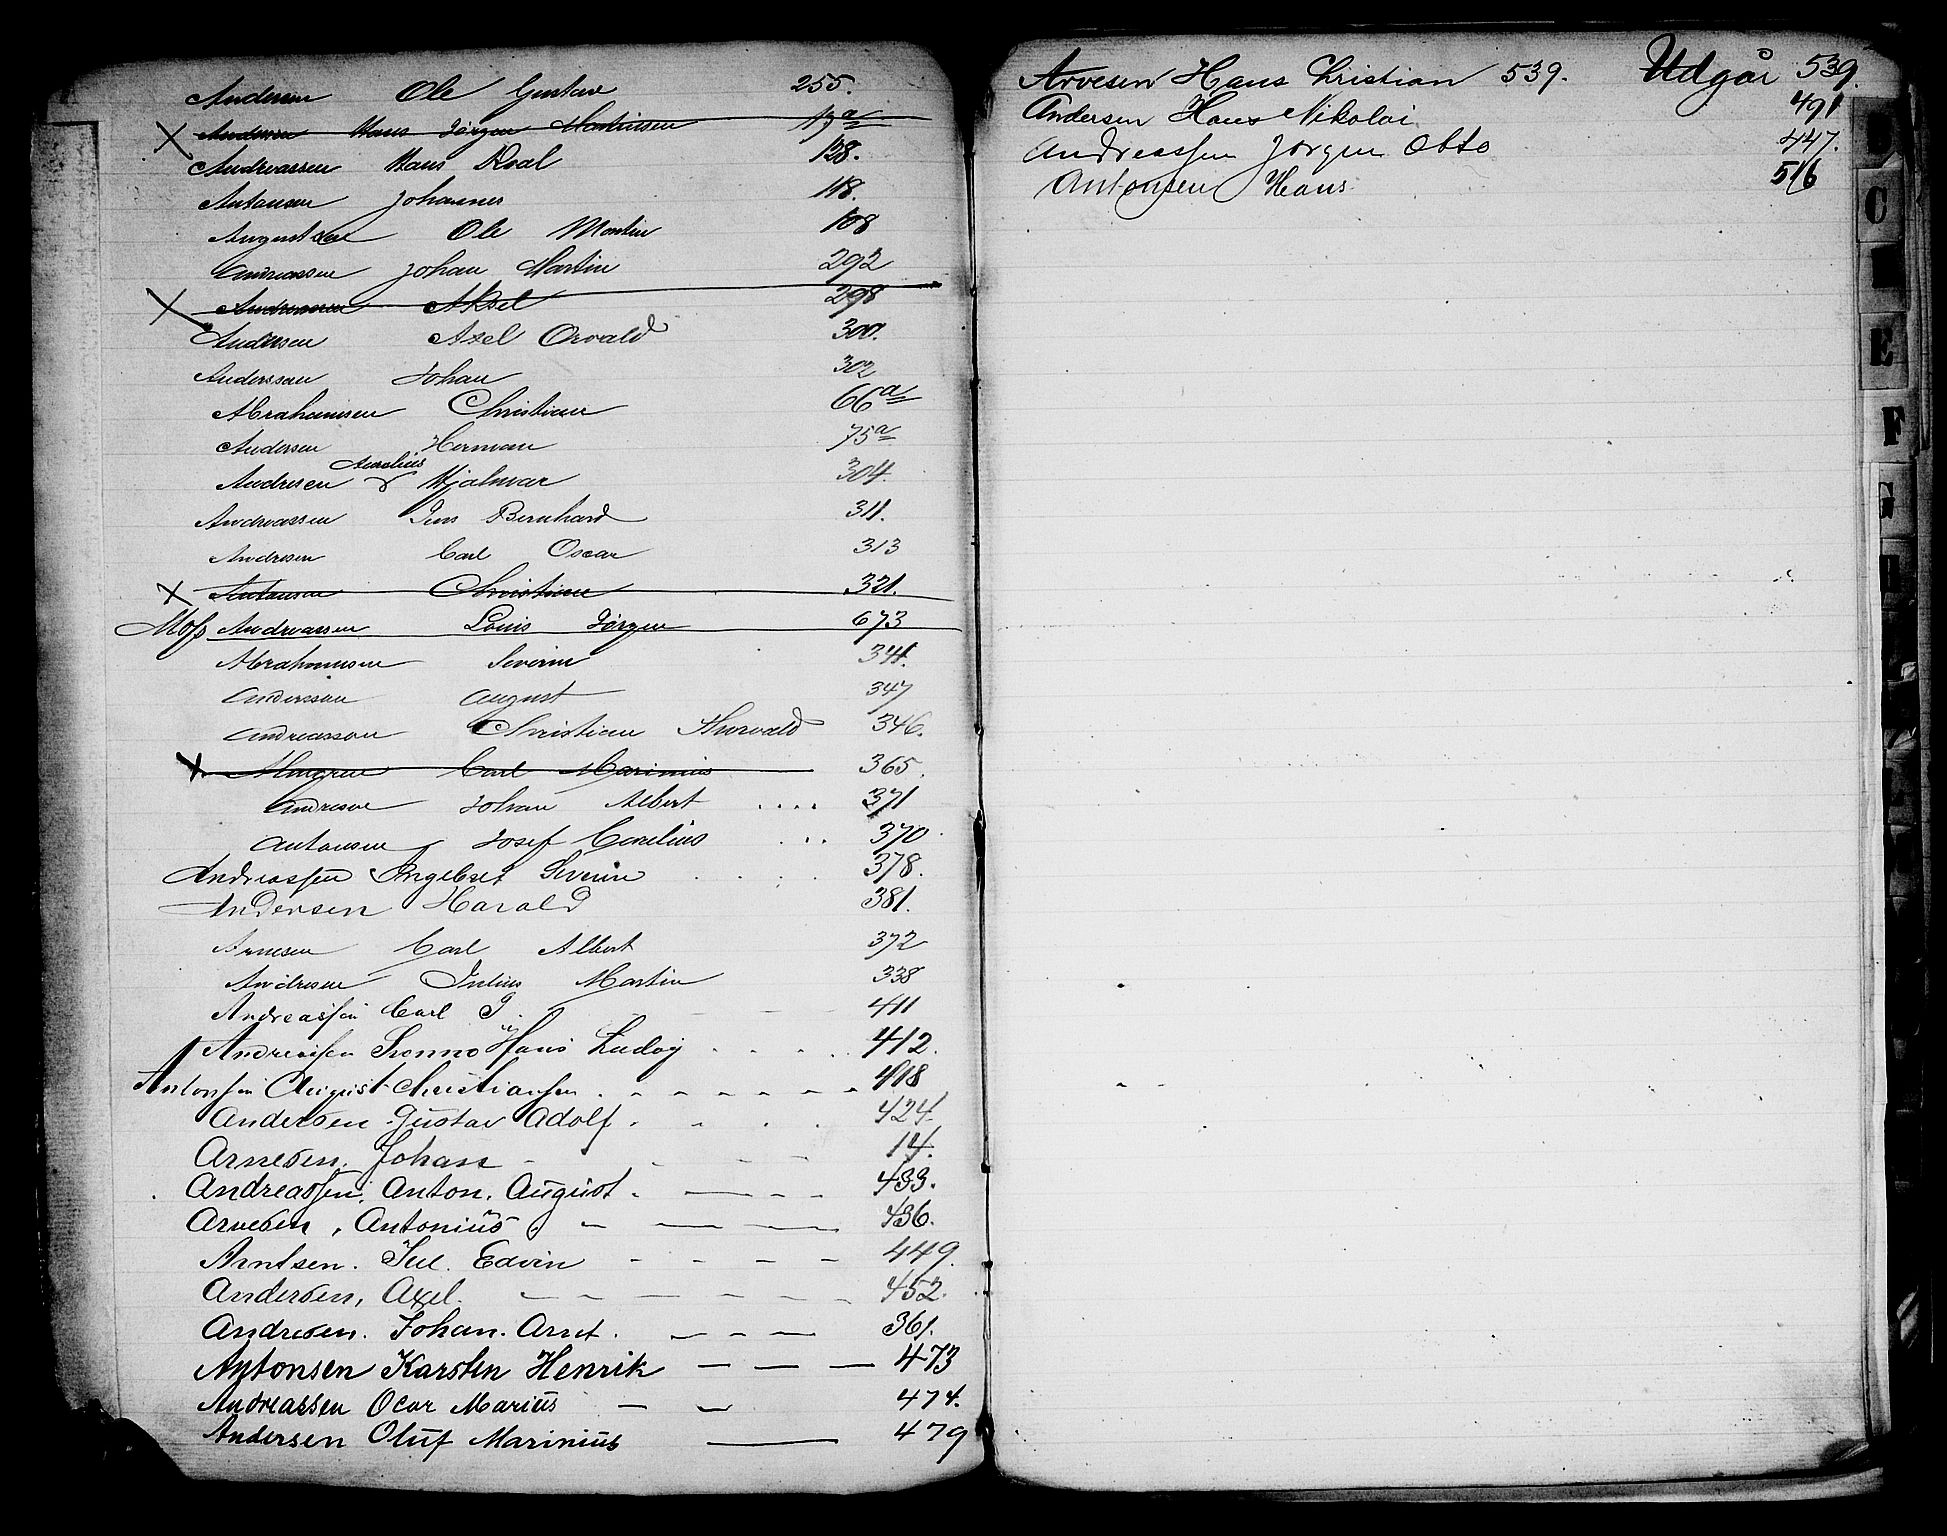 Andersen Ole Gustav 255.
X Andersen Hans Jörgen Martinsen 17a
Andreassen Hans Roal 128.
Antonsen Johannes 118.
Augustsen Ole Martin 108
Andreassen Johan Martin 292
X Andreassen Aksel 298
Andersen Axel Orvald 300.
Anderssen Johan 302
Abrahamsen Christian 66a
Andersen Herman 75a
Aurelius
Andresen Hjalmar 304.
Andreassen Jens Bernhard 311.
Andresen Carl Oscar 313
X Antonsen Christian 321.
Moss Andreassen Louis Jörgen 673
Abrahamsen Severin 341.
Andersson August 347
Andreasson Christian Thorvald 346.
X Carl Marinius 365.
Andresen Johan Albert .... 371
Antonsen Josef Cornelius ... 370.
Andreassen Ingebret Severin 378.
Andersen Harald 381.
Arnesen Carl Albert 372
Andresen Julius Martin 338
Andreassen Carl J. 411
Andreassen Hans Ludvig 412.
Antonssen August Christiansen 418
Andersen Gustav Adolf. 424.
Arnesen. Johan 14.
Andreassen. Anton. August. 433.
Arvesen, Antonius 436.
Arntsen. Jul. Edvin 449.
Andersen, Axel. 452.
Andresen. Johan. Arnt. 361.
Antonsen Karsten Henrik 473
Andreassen Ocar Marius 474.
Andersen Oluf Marinius 479
Arvesen Hans Christian 539. Udgår 539.
Andersen Hans Nikolai 491
Andreassen Jørgen Otto 447.
Antonsen Hans 516
C
E
F
G